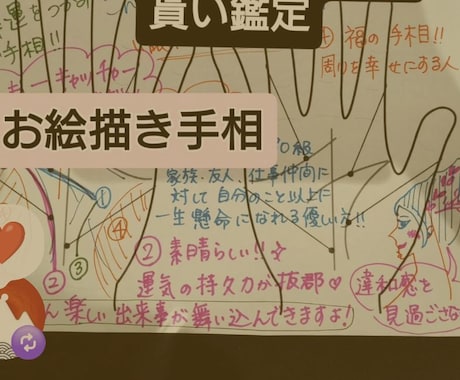 貰い鑑定
お絵描き手相
運をつかむ
手相!!
キャッチャー
④ 福の手相!!
周りを幸せにする人
家族、友人、仕事仲間に
対して自分のこと以上に
一生懸命になれる優しい方!!
①
④
②
③
② 素晴らしい!!☆
運気の持久力が抜群♡
違和感を
見過ごさな
ん楽しい出来事が舞い込んできますよ!